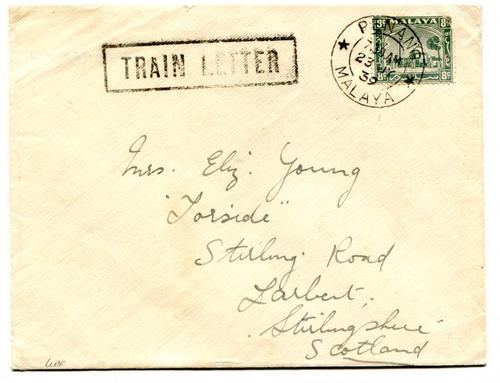 TRAIN LETTER
PENANG
AM
23
39
MALAYA
MALAYA
8c 8c
8c 8c
Mrs. Eliz. Young
"Torside"
Stirling Road
Larbert,
Stirlingshire
Scotland